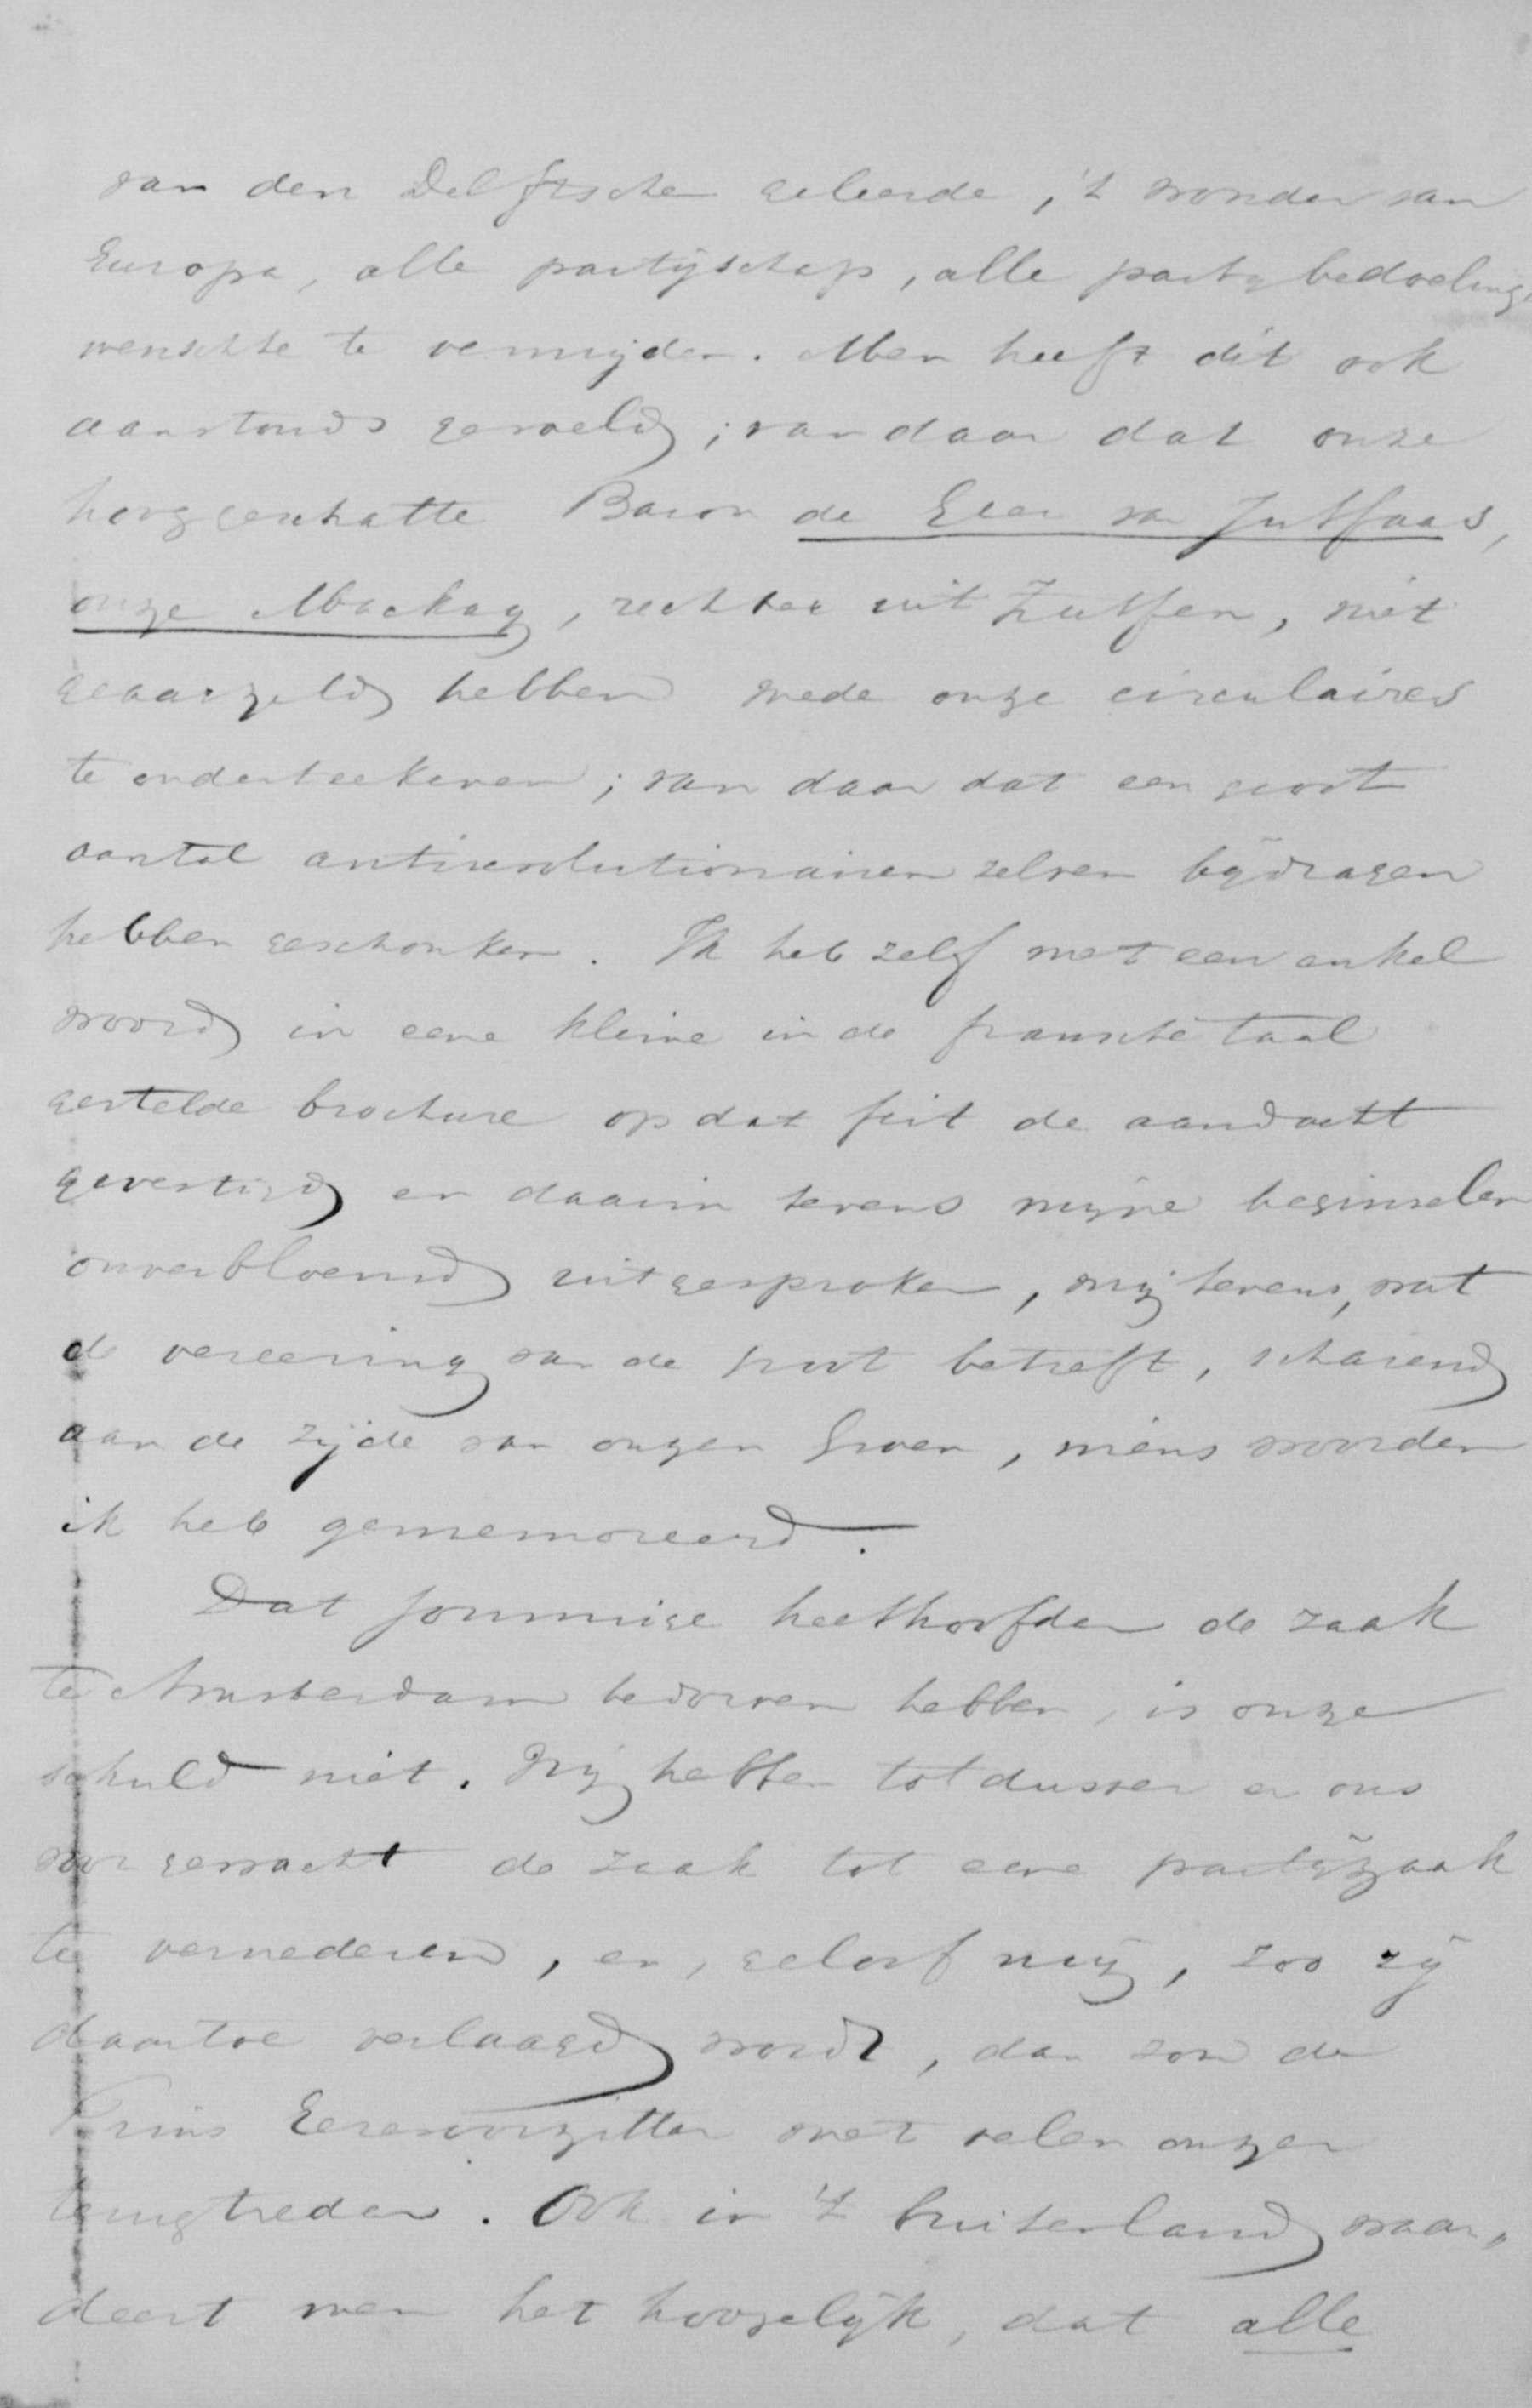 van den Delftschen geleerde, 't wonder van
Europa, alle partijschap, alle partybedoeling
wenschte te vermijden. Men heeft dit ook
aanstonds gevoeld; van daar dat onze
hooggeschatte Baron de Geer van Jutfaas,
onze Mackay, rechter uit Zutfen, niet
geaarzeld hebben mede onze circulaires
te onderteekenen; van daar dat een groot
aantal antirevolutionairen zelven bijdragen
hebben geschonken. Ik heb zelf met een enkel
woord in eene kleine in de fransche taal
gestelde brochure op dat feit de aandacht
gevestigd en daarin tevens mijne beginselen
onverbloemd uitgesproken, mij tevens, wat
de vereering van de groot betreft, scharend
aan de zijde van onzen Groen, wiens woorden
ik heb gememoreerd.
Dat sommige heethoofden de zaak
te Amsterdam bedorven hebben, is onze
schuld niet. Wij hebben tot dusver er ons
voor gewacht de zaak tot eene partijzaak
te vernederen, en, geloof mij, zoo zij
daartoe verlaagd wordt, dan zou de
Prins Eerevoorzitter met velen onzer
terugtreden. Ook in 't buitenland waar„
deert men het hoogelijk, dat alle